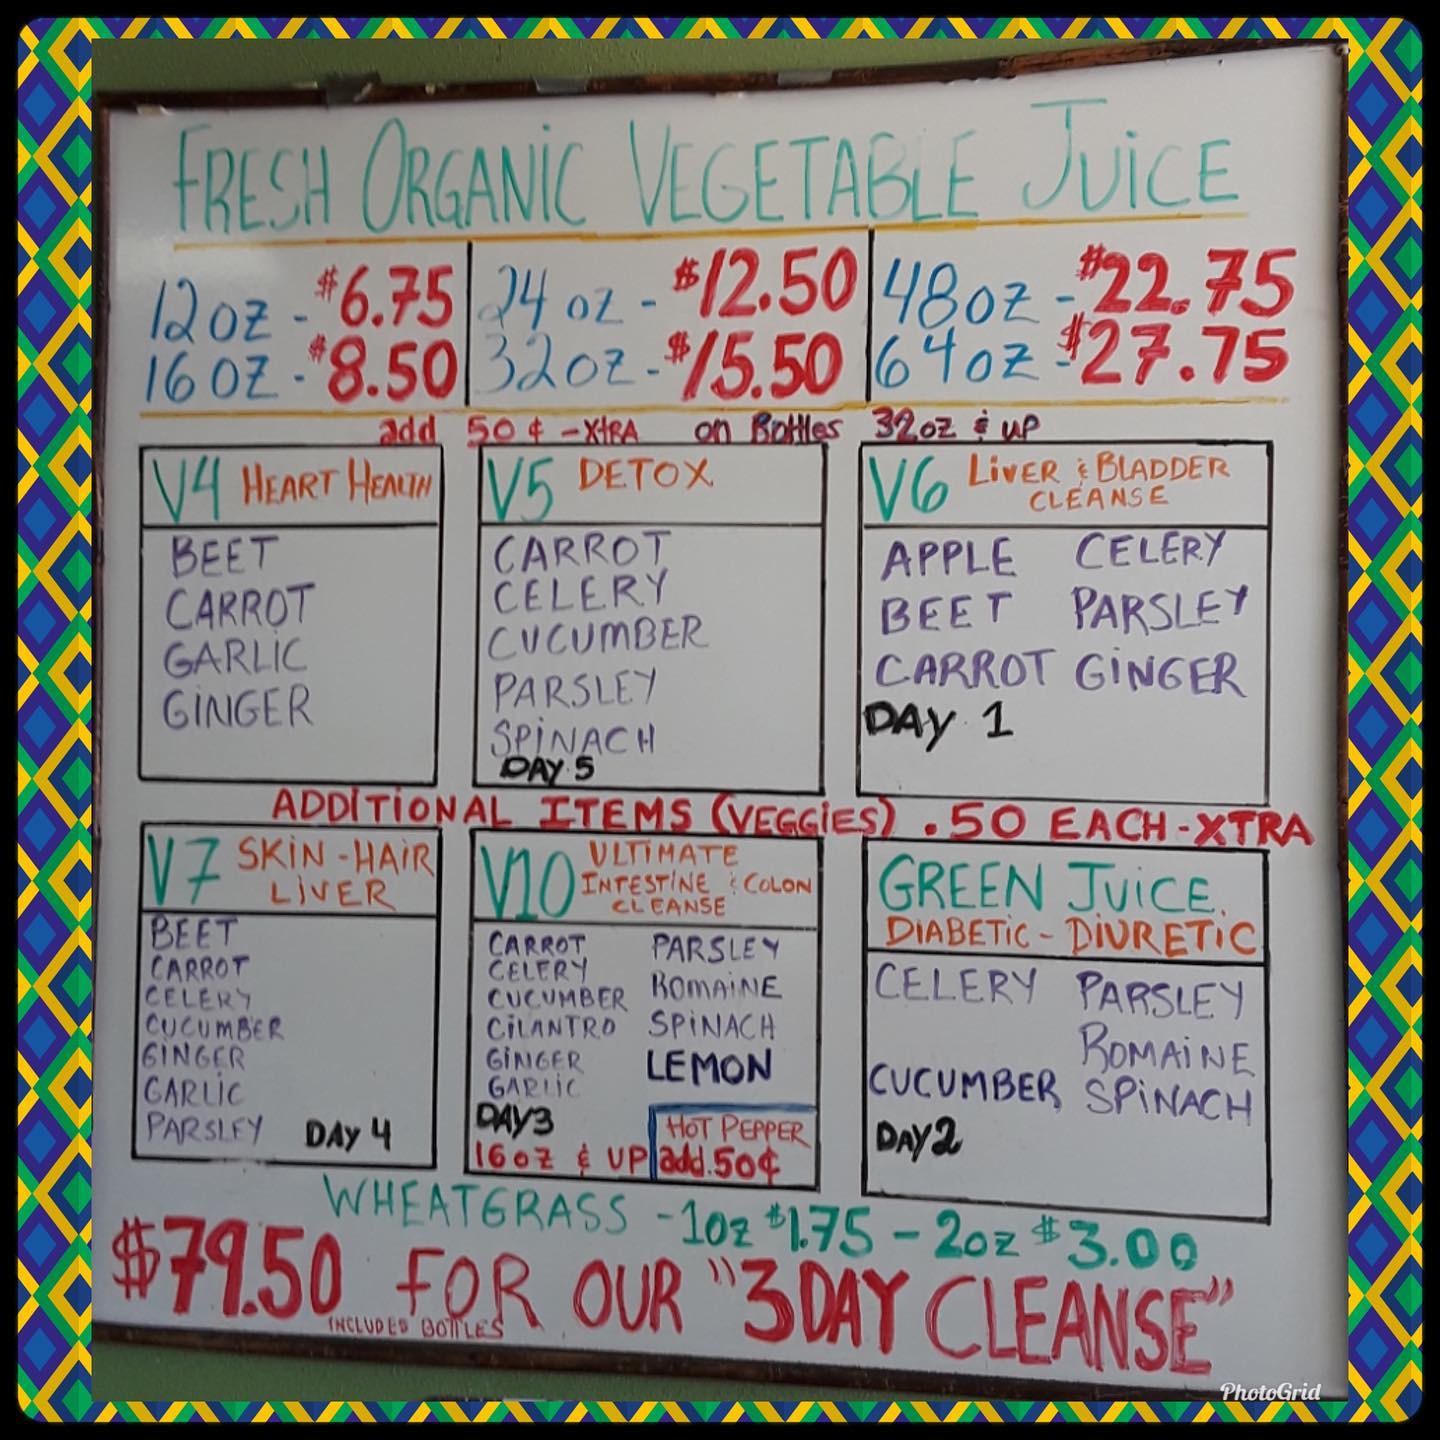 FRESH ORGANIC VEGETABLE JUICE
12oz - $6.75
16oz - $8.50
24oz - $12.50
32oz - $15.50
48oz - $22.75
64oz - $27.75
add 50¢ - XTRA on Bottles 32oz & up
V4 HEART HEALTH
BEET
CARROT
GARLIC
GINGER
V5 DETOX
CARROT
CELERY
CUCUMBER
PARSLEY
SPINACH
DAY 5
V6 LIVER & BLADDER
CLEANSE
APPLE CELERY
BEET PARSLEY
CARROT GINGER
DAY 1
ADDITIONAL ITEMS (VEGGIES) .50 EACH - XTRA
V7 SKIN - HAIR
LIVER
BEET
CARROT
CELERY
CUCUMBER
GINGER
GARLIC
PARSLEY DAY 4
V10 ULTIMATE
INTESTINE & COLON
CLEANSE
CARROT PARSLEY
CELERY
CUCUMBER ROMAINE
CILANTRO SPINACH
GINGER LEMON
GARLIC
DAY 3
16oz & UP
HOT PEPPER
add .50¢
GREEN JUICE
DIABETIC - DIURETIC
CELERY PARSLEY
ROMAINE
CUCUMBER SPINACH
DAY 2
WHEATGRASS - 1oz $1.75 - 2oz $3.00
$79.50 FOR OUR "3 DAY CLEANSE"
INCLUDES BOTTLES
PhotoGrid